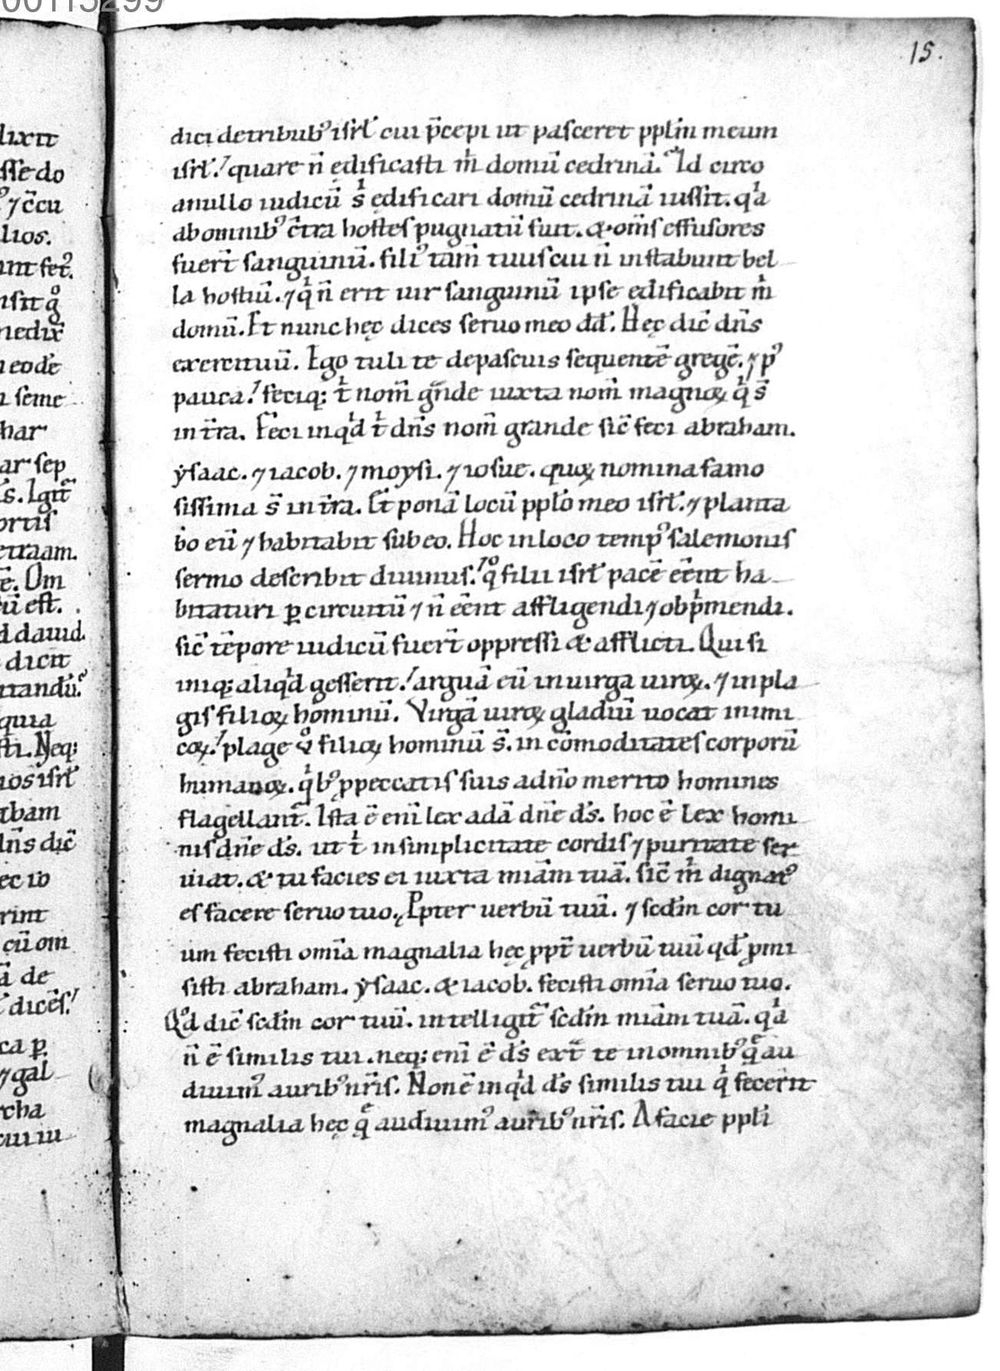 00115299
15.
lixit
sse do
⁊ c̄cu
lios.
unt set᷒.
isit qͦ
nedix̄
eodē
semē
har
ar sep
s̄. Igit᷑
ortis
etraam.
ē. Om
ū est.
d dauid.
dicit
tandū.
quia
sti. Neq;
nos isrł
tbam
dn̄s dic̄
ec io
rint
cū om
ā de
dicēs.
ca ꝑ
⁊ gal
cha
dici detribubꝰ isrł cui p̄cepi ut pasceret ppłm meum
isrł. quare n̄ ędificasti m̄ domū cedrinā. Id circo
anullo iudicū s̄ ędificari domū cedrinā iussit. qͥa
abomnibꝰ c̄tra hostes pugnatū fuit. & om̄s effusores
fuer̄t sanguinū. filiꝰ tam̄ tuus cui n̄ instabunt bel
la hostiū. ⁊ qͥ n̄ erit uir sanguinū ipse ędificabit m̄
domū. Et nunc hęc dices seruo meo dd̄. Hęc dic̄ dn̄s
exercituū. Ego tuli te depascuis sequentē gregē. ⁊ pꝰ
pauca. feciq; t̄ nom̄ gn̄de iuxta nom̄ magnoꝝ qͥ s̄
in tr̄a. Feci inqͥd t̄ dn̄s nom̄ grande sic̄ feci abraham.
ẏsaac. ⁊ iacob. ⁊ moysi. ⁊ iosue. quoꝝ nomina famo
sissima s̄ in tr̄a. Et ponā locū pplo meo isrł. ⁊ planta
bo eū ⁊ habitabit sub eo. Hoc inloco tempꝰ salemonis
sermo describit diuinus. qͦ filii isrł pacē eēnt ha
bitaturi ꝑ circuitū ⁊ n̄ eēnt affligendi ⁊ obpͥmendi.
sic̄ tēpore iudicū fuer̄t oppressi & afflicti. Qui si
iniq; aliqͥd gesserit. arguā eū inuirga uiroꝝ. ⁊ inpla
gis filioꝝ hominū. Virgā uiroꝝ gladiū uocat inimi
coꝝ. plage ꝟͦ filioꝝ hominū s̄. in cōmoditates corporū
humanoꝝ. qͥbꝰ ꝓpeccatis suis adn̄o merito homines
flagellant᷑. Ista ē eni lex adā dn̄e ds̄. hoc ē Lex homi
nis dn̄e ds̄. ut t̄ insimplicitate cordis ⁊ puritate ser
uiat. & tu facies ei iuxta miām tuā. sic̄ m̄ dignatꝰ
es facere seruo tuo. Ppter uerbū tuū. ⁊ scd̄m cor tu
um fecisti omīa magnalia hęc ppt̄ uerbū tuū qd̄ ꝓmi
sisti abraham. ẏsaac. & iacob. fecisti omīa seruo tuo.
Qd̄ dic̄ scd̄m cor tuū. intelligit᷑ scd̄m miām tuā. qͥa
n̄ ē similis tui. neq; eni ē ds̄ ext̄ te inomnibꝰ q̄ au
diuimꝰ auribꝰ nr̄is. Non ē inqͥd ds̄ similis tui qͥ fecerit
magnalia hęc q̄ audiuimꝰ auribꝰ nr̄is. A facie ppli